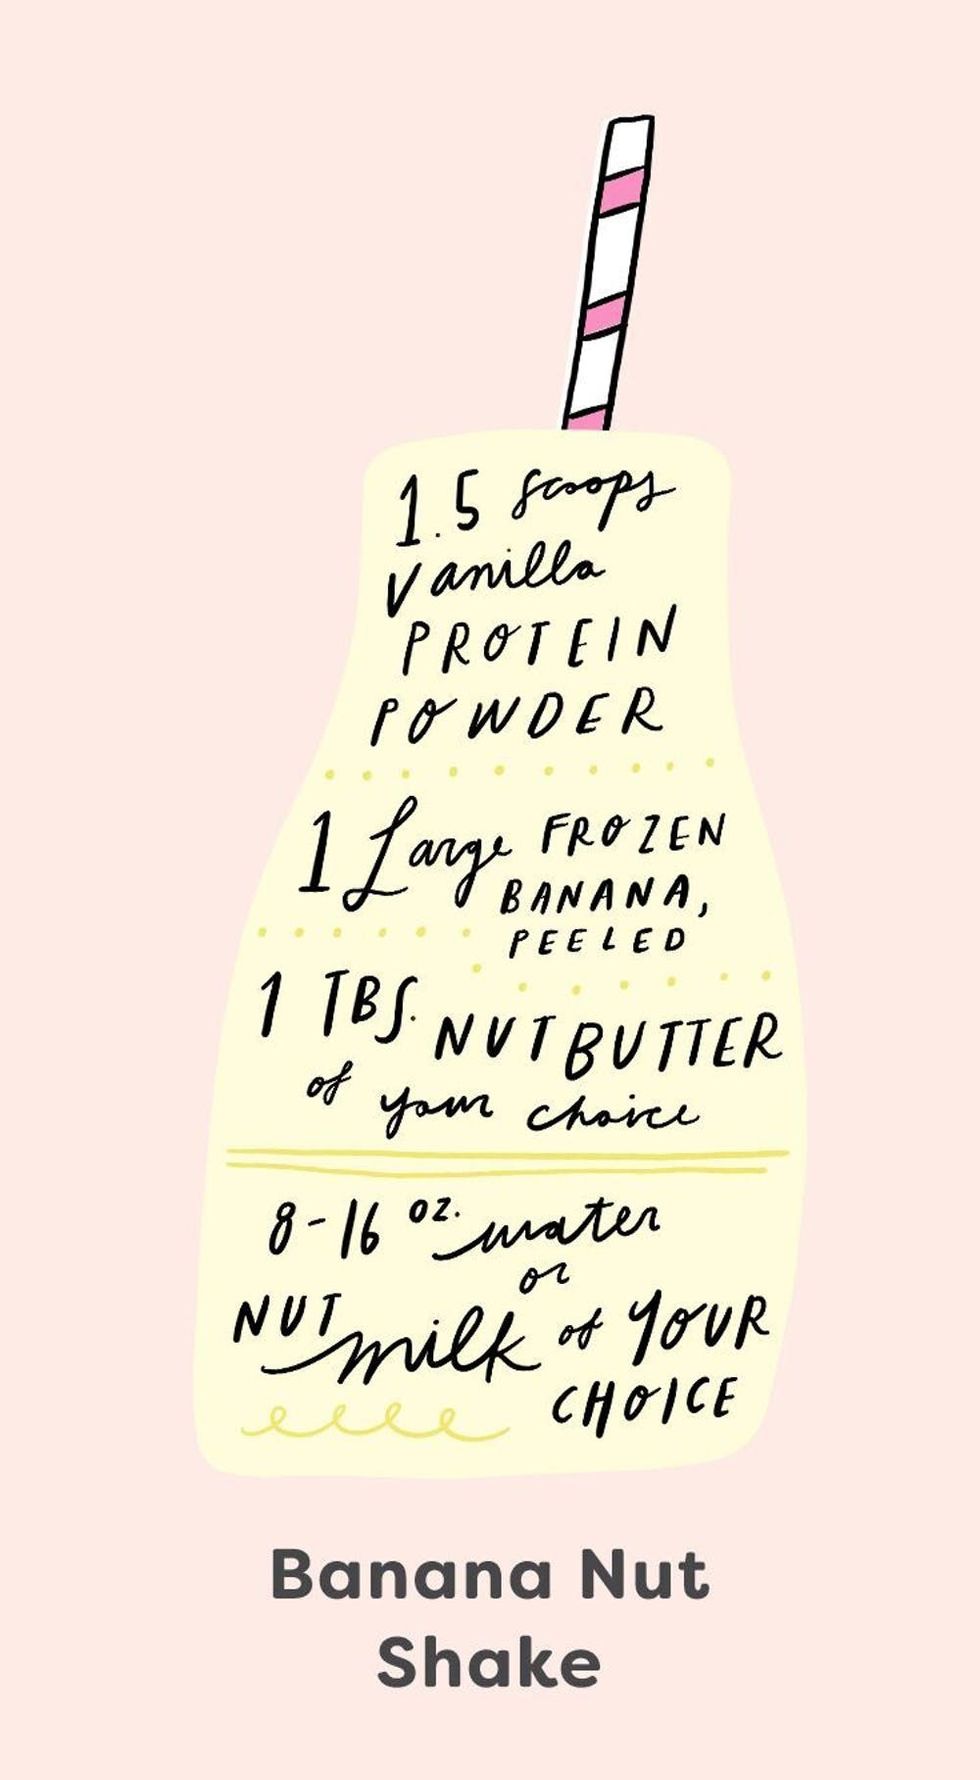 1.5 scoops
vanilla
PROTEIN
POWDER
1 Large FROZEN
BANANA,
PEELED
1 TBS. NUT BUTTER
of your choice
8-16 oz. water
or
NUT milk of YOUR
CHOICE
Banana Nut
Shake